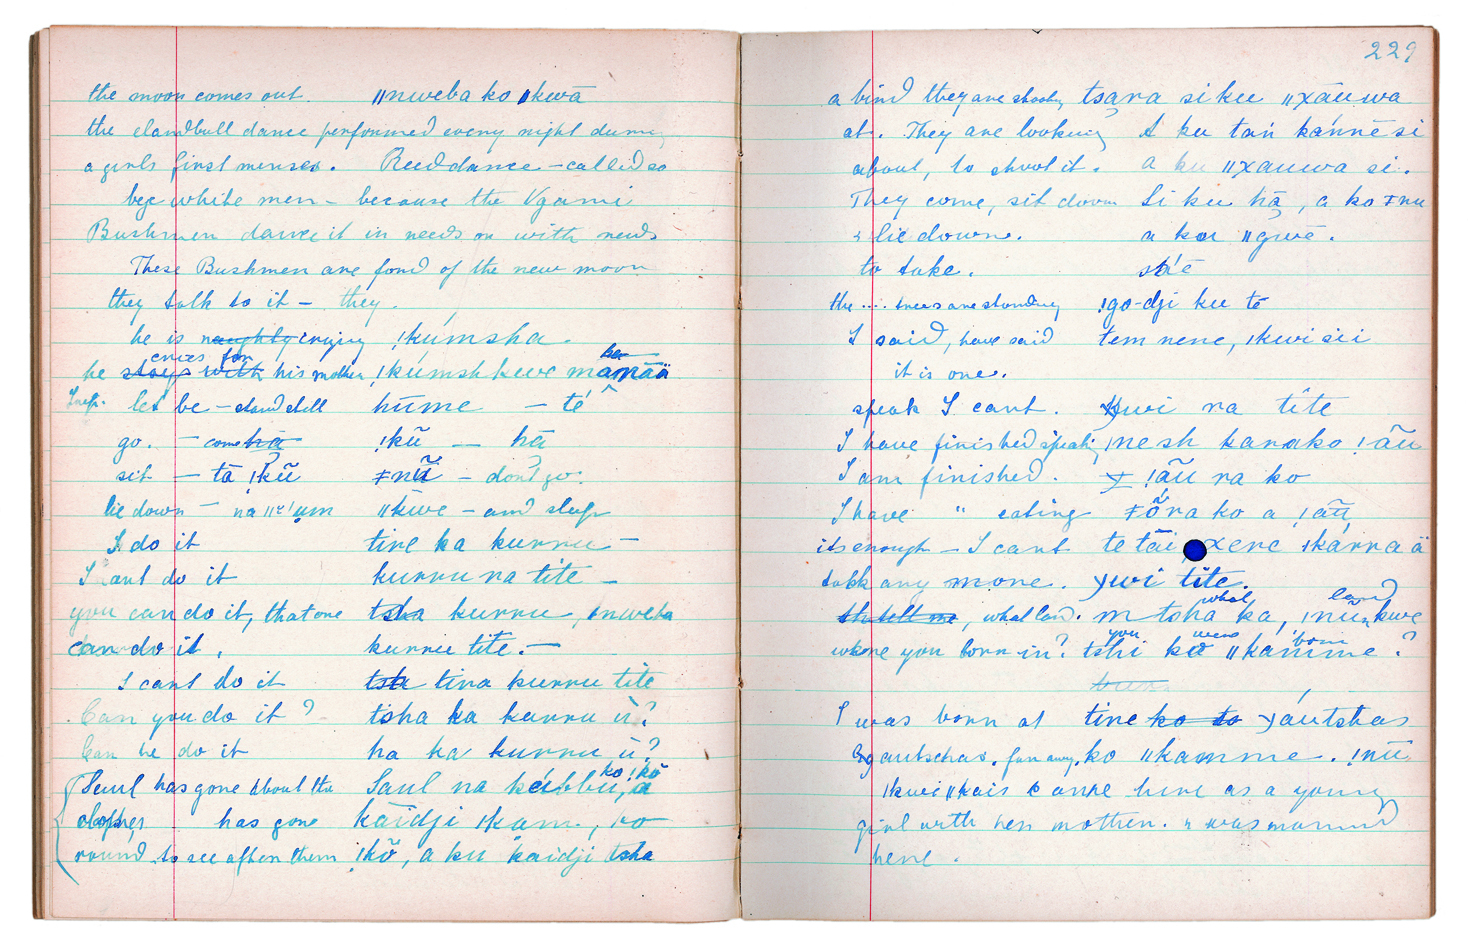 the moon comes out. ǁnweba ko ǁkwā
the elandbull dance performed every night during
a girls first menses. Reed dance – called so
bye white men – because the Ngami
Bushmen dance it in reeds or with reeds
These Bushmen are fond of the new moon
they talk to it – they.
he is naughty crying !kúmsha.
cries for
he stays with his mother, !kúmsh kwe mamāä
let be – stand still hūme – té
go. – come hā !kũ – hā
sit – tā !kũ ǂnũ – dont go.
lie down – ǁkwe – and sleep
I do it tire ka kurru –
I cant do it kurru na tite –
you can do it, that one tsha kurru, ǀnweba
can do it, kurru tite. –
I cant do it tina kurru tite
Can you do it? tsha ka kurru ù?
Can he do it ha ka kurru ù?
Saul has gone about the Saul na kabbu, a ko !kõ
has gone kāidji ǀkam, ko
round to see after them !kõ, a ku kaidji tsha
229
a bird they are shooting tsara si ku ǁxāuwa
at. They are looking A ku tań kánnē si
about, to shoot it. a ku ǁxauwa si.
They come, sit down Si ku hā, a ko ǂnu
& lie down. a ka ǁgwē.
to take. s'é
the .... trees are standing !go-dji ku tē
I said, have said tem nene, ǀkwi sii
it is one.
speak I cant. ywi na tite
I have finished speaking ǀne sh kanako !ãu
I am finished. !ãu na ko
I have " eating ǂõra ko a !ãu
its enough – I cant te tāi xere ǀkárra ä
talk any more. ywi tite.
what land
th tell me, what land. m tsha ka, ǀnũ kwe
you were born
where you born in? tshi kō ǁkamme?
I was born at tire ko to yáutshas
gautschas. far away. ko ǁkamme. !nū
ǀkwi ǁkais came here as a young
girl with her mother. & was married
here.